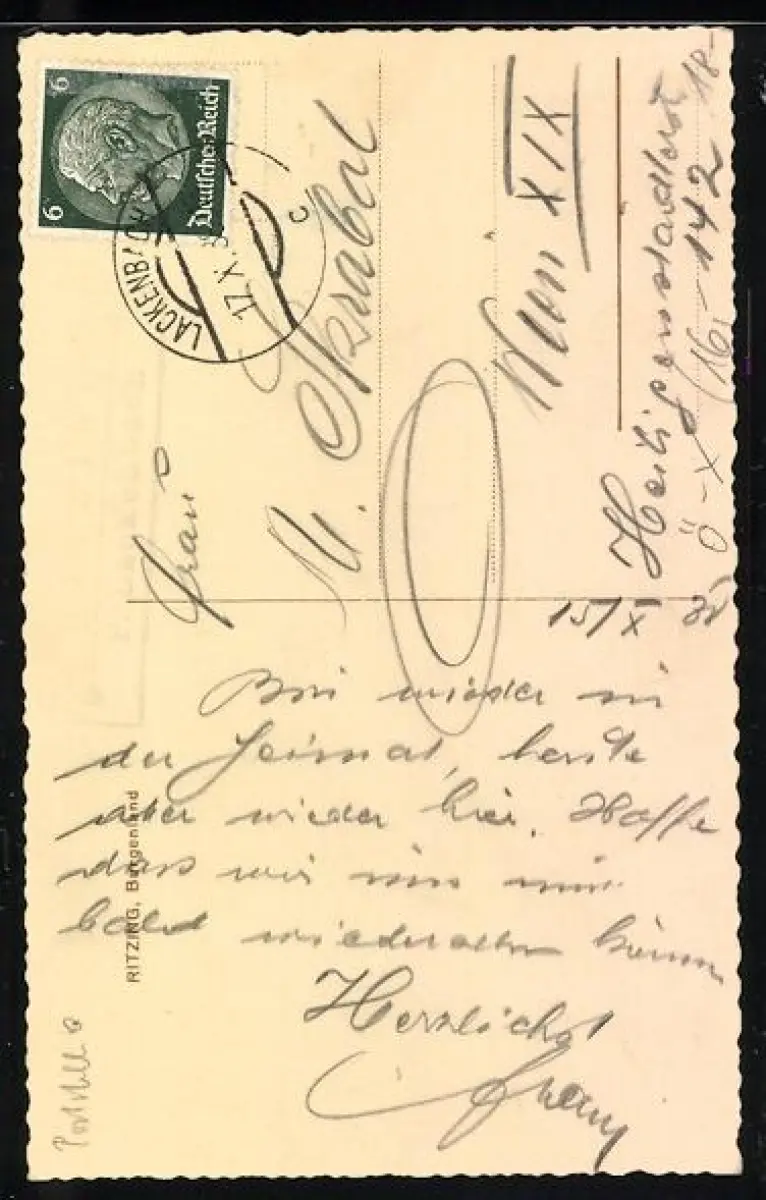 6
6
Deutsches Reich
LACKENBACH
17. X. 3
c
Frau
M. Skrabal
Wien XIX
Heiligenstädterst
142
18-
Ö-X
15/XI 38
Bin wieder in
der Heimat, heute
aber wieder hier. Hoffe
dass wir uns nun
bald wiedersehen können
Herzlichst
Franz
RITZING, Burgenland
Poststelle